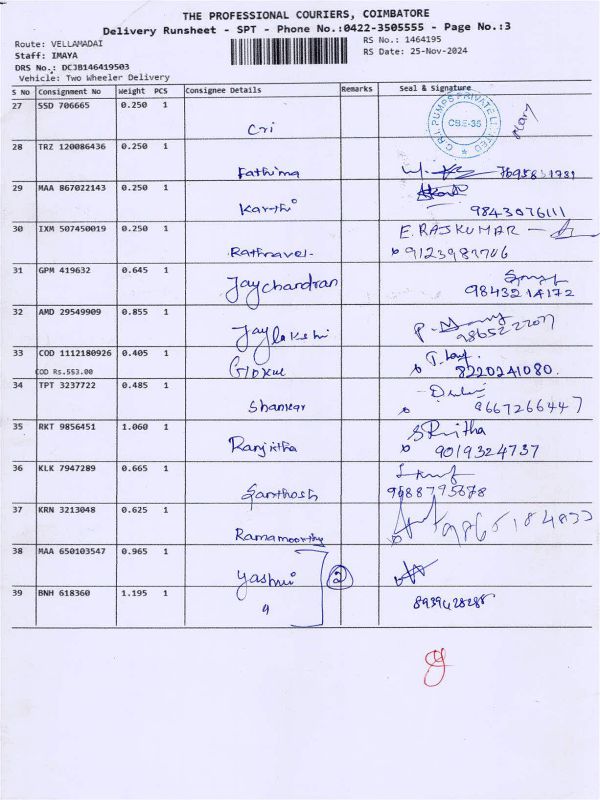 THE PROFESSIONAL COURIERS, COIMBATORE
Delivery Runsheet - SPT - Phone No.:0422-3505555 - Page No.:3
Route: VELLAMADAI
RS No.: 1464195
Staff: IMAYA
RS Date: 25-Nov-2024
DRS No.: DCJB146419503
Vehicle: Two Wheeler Delivery
S No Consignment No Weight PCS Consignee Details Remarks Seal & Signature
27 SSD 706665 0.250 1
Cri
C.R.I. PUMPS PRIVATE LIMITED
CBE-35
28 TRZ 120086436 0.250 1
Fathima
29 MAA 867022143 0.250 1
Karthi 9843076111
30 IXM 507450019 0.250 1 E. RAJKUMAR
Rathnavel 9123987706
31 GPM 419632 0.645 1
Jaychandran 9843214172
32 AMD 29549909 0.855 1
33 COD 1112180926 0.405 1
COD Rs.553.00 8220241080.
34 TPT 3237722 0.485 1
Shankar 9667266447
35 RKT 9856451 1.060 1
Ranjitha 9019324737
36 KLK 7947289 0.665 1
Santhosh 9688795678
37 KRN 3213048 0.625 1
Ramamoorthy
38 MAA 650103547 0.965 1
2
39 BNH 618360 1.195 1